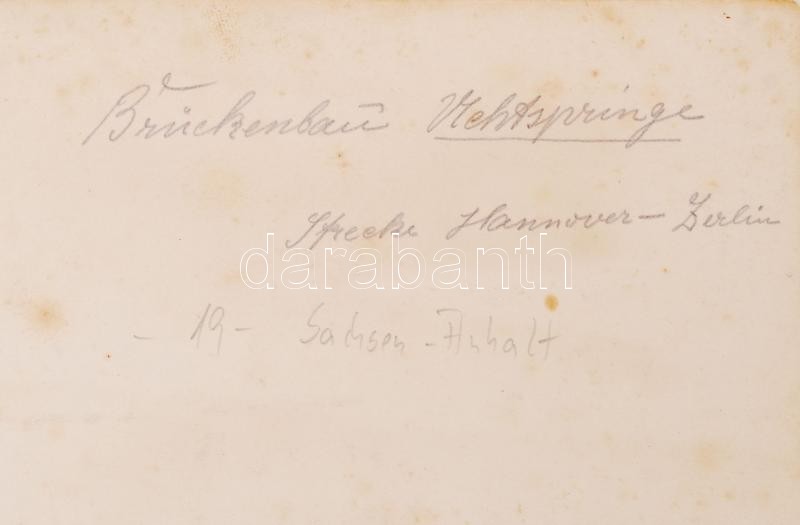 Brückenbau Uchtspringe
Strecke Hannover - Berlin
darabanth
- 19 - Sachsen - Anhalt